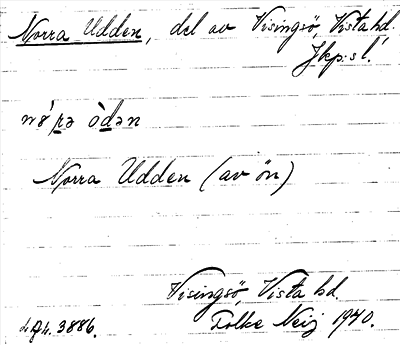 Norra Udden, del av Visingsö, Vista hd.
Jkp:s l.
nó̀rə òdən
Norra Udden (av ön)
Visingsö, Vista hd.
3886. Folke Neij 1940.